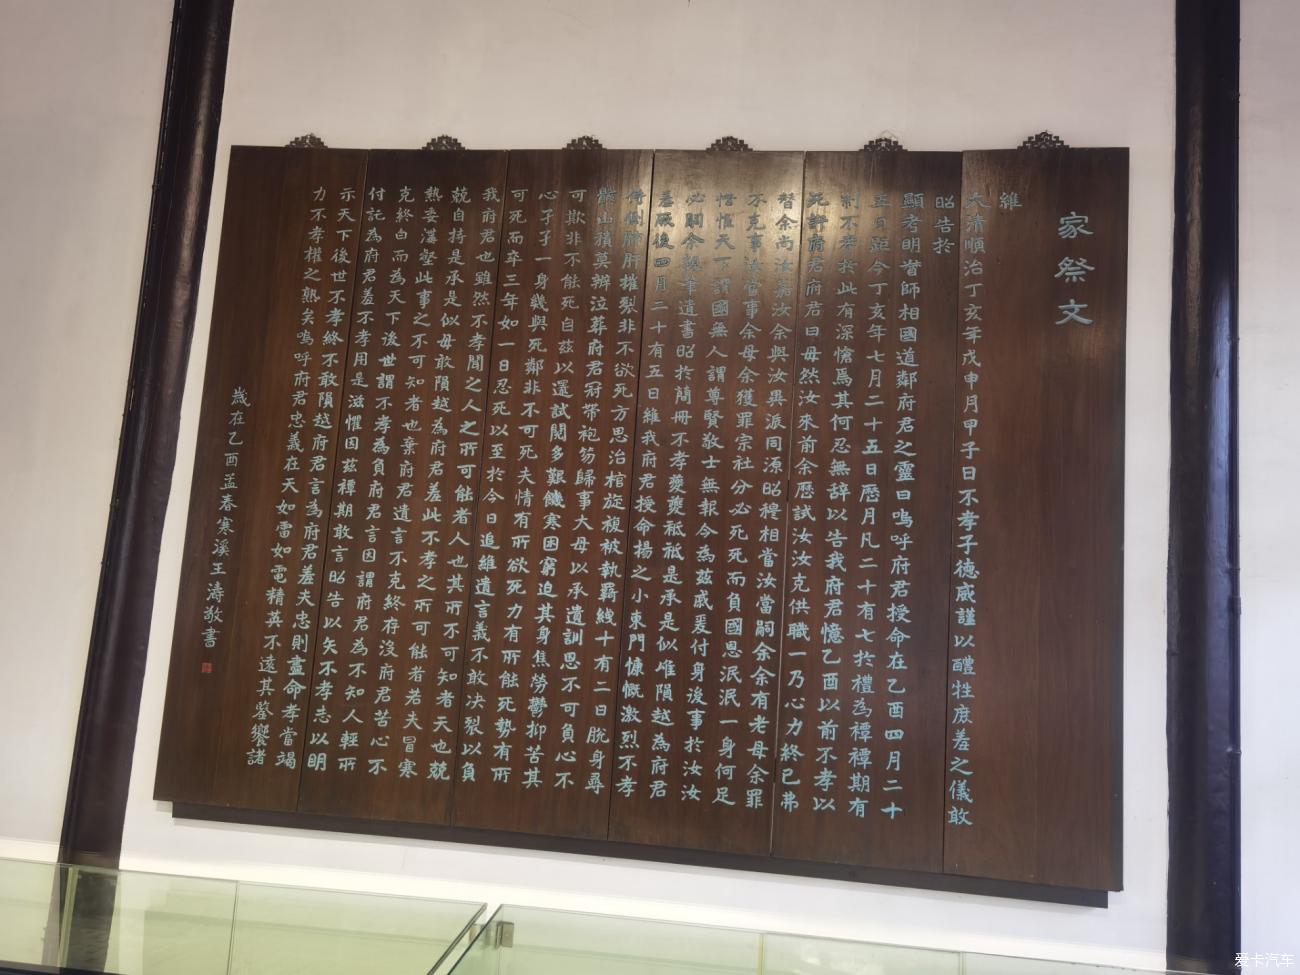 家祭文
維
大清順治丁亥年戊申月甲子日不孝子德威謹以醴牲庶羞之儀敢
昭告於
顯考明督師相國道鄰府君之靈曰嗚呼府君授命在乙酉四月二十
五日距今丁亥年七月二十五日歷月凡二十有七於禮為禫禫期有
制不孝於此有深愴焉其何忍無辞以告我府君憶乙酉以前不孝以
死許府君府君曰毋然汝來前余歷試汝汝克供職一乃心力終已弗
替余尚汝嘉汝余與汝異派同源昭穆相當汝當嗣余余有老母余罪
不克事汝當事余母余獲罪宗社分必死死而負國恩泯泯一身何足
惜惟天下謂國無人謂尊賢敬士無報今為茲戚爰付身後事於汝汝
必嗣今親筆遺書昭於簡冊不孝夔夔祗祗是承是似惟隕越為府君
羞厥後四月二十有五日維我府君授命揚之小東門慷慨激烈不孝
侍側肺肝摧裂非不欲死方思治棺旋複被執羁綫十有二日脫身尋
骸山積莫辦泣葬府君冠帶袍笏歸事大母以承遺訓恩不可負心不
可欺非不能死自茲以還試閱多艱饑寒困窮迫其身焦勞鬱抑苦其
心孑孑一身幾與死鄰非不可死夫情有所欲死力有所能死勢有所
可死而卒三年如一日忍死以至於今日追維遺言義不敢决裂以負
我府君也雖然不孝聞之人之所可能者人也其所不可知者天也兢
兢自持是承是似毋敢隕越為府君羞此不孝之所可能者若夫冒寒
熱委溝壑此事之不可知者也棄府君遺言不克終存沒府君苦心不
克終白而為天下後世謂不孝為負府君言因謂府君為不知人輕所
付託為府君羞不孝用是滋懼因茲禫期敢言昭告以矢不孝志以明
示天下後世不孝終不敢隕越府君言為府君羞夫忠則盡命孝當竭
力不孝權之熟矣嗚呼府君忠義在天如雷如電精英不遠其鑒饗諸
歲在乙酉孟春寒溪王濤敬書
爱卡汽车